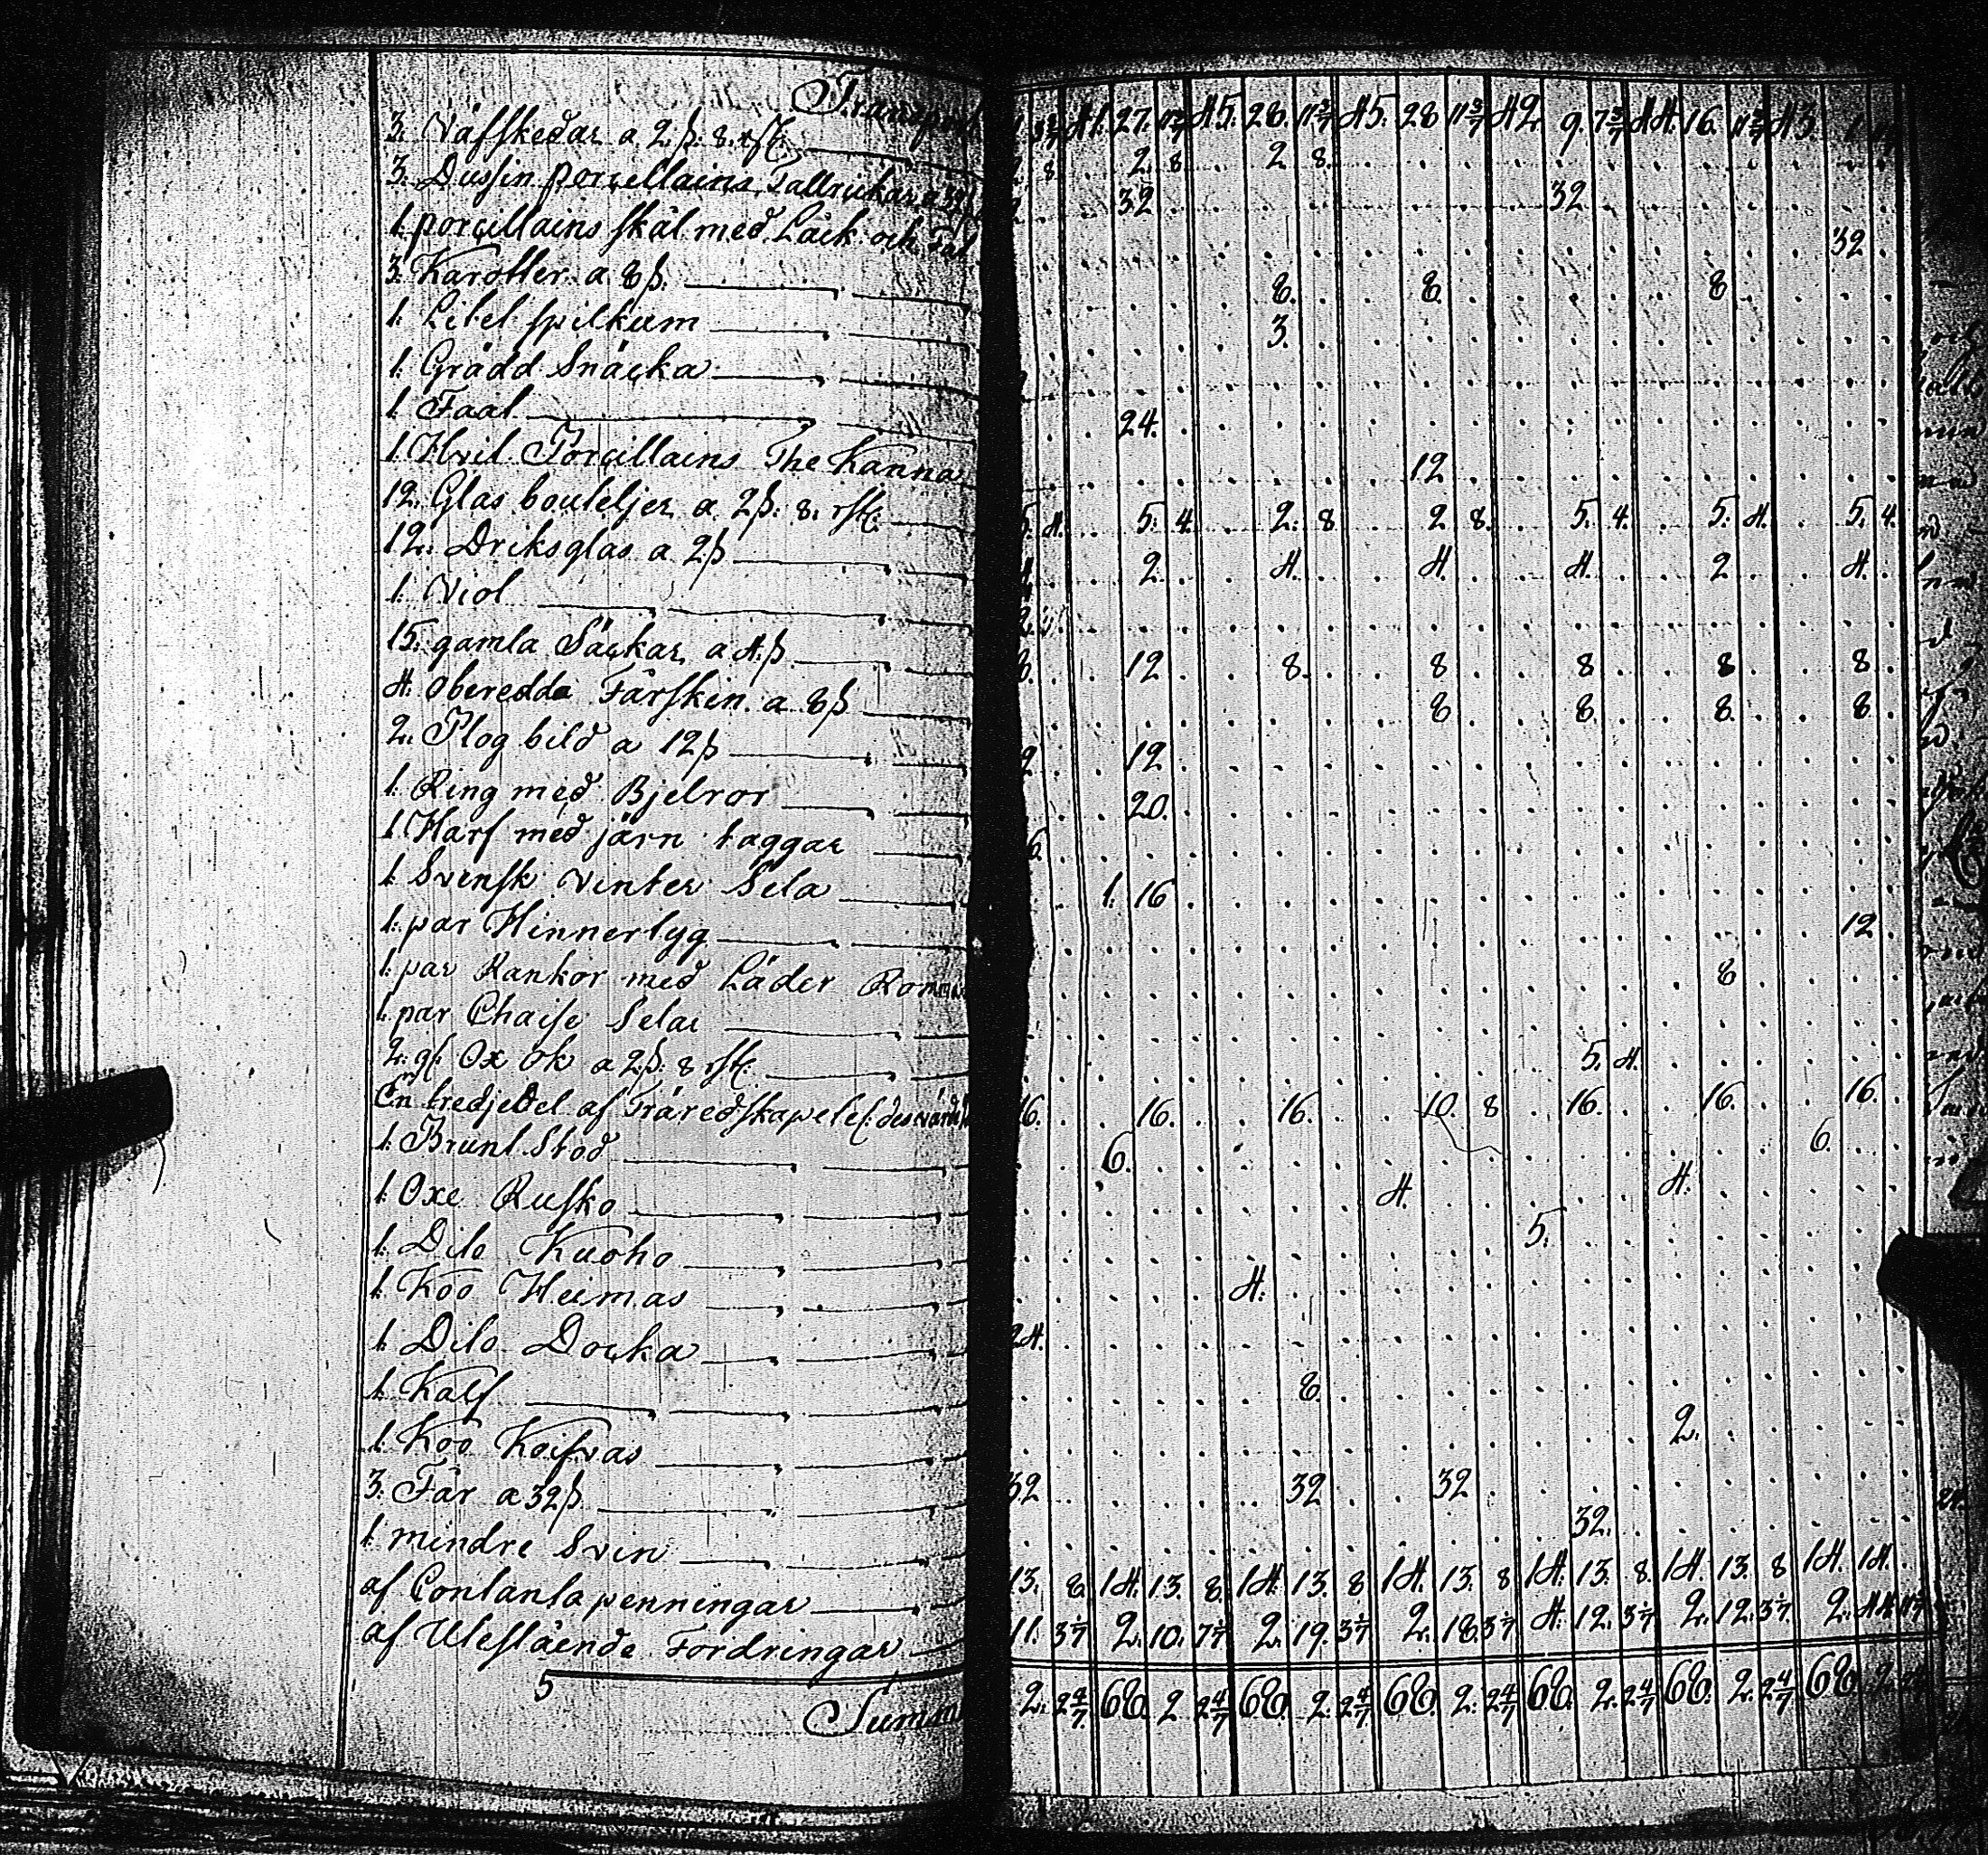 Transport 41. 27. 11 3/7 45. 28. 11 3/7 45. 28 11 3/7 42. 9. 7 3/7 44. 16. 11 3/7 43.
3. Väfskedar a 2 ß: 8. rst: 2. 8. 2. 8. 2 8.
3. Dussin Porcellains Tallrickar a 32 32 32
1. porcillains skål med Låck och Fat 32
3. Karotter a 8 ß. 8. 8. 8
1. Litet spilkum 3.
1. Grädd Snäcka
1. Faat 24.
1. Hvit Porcillains The Kanna 12
12. Glas bouteljer a 2 ß: 8. rst: 5. 4. 5. 4. 2. 8 2 8. 5. 4. 5. 4. 5. 4.
12. Driksglas a 2 ß 4 2. 4. 4. 4. 2 4.
1. Viol
15. gamla Säckar a 4 ß 8. 12 8. 8 8 8 8.
4. oberedda Fårskin a 8 ß 8 8. 8. 8
2. Plog bild a 12 ß 12
1. Ring med Bjelror 20.
1 Harf med järn taggar
1. Svensk vinter Sela 1. 16
1. par Hinnertyg 12
1. par Rankor med Läder 8
1. par Chaise Selar
2. gl. Ox Ok a 2 ß: 8 rst: 5. 4.
En tredjedel af Träredskapetet: des 16. 16. 16. 10. 8 16. 16. 16.
1. Brunt Stod 6. 6.
1. Oxe Rusko 4. 4.
1. Dito Kuoho 5.
1. Koo Heimas 4.
1. Dito Docka 24.
1. Kalf 8.
1. Koo Koifvas 2.
3. Får a 32 ß 32 32 32
1. mindre Svin 32.
af Contanta penningar 13. 8. 14. 13. 8. 14. 13. 8 14. 13. 8 14. 13. 8. 14. 13. 8 14. 14.
af Utestående Fordringar 11. 3 1/7 2. 10. 7 1/7 2. 19. 3 1/7 2. 18. 3 1/7 4. 12. 3 1/7 2. 12. 3 1/7 2. 44.
5
Summa 2. 2 4/7. 68. 2 2 4/7 68. 2. 2 4/7 68. 2. 2 4/7 68. 2. 2 4/7 68. 2. 2 4/7 68. 2.